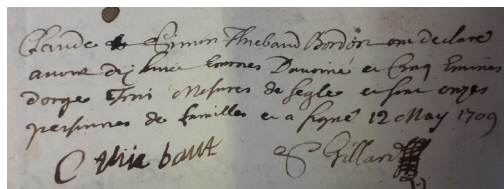 Claude & Simon Thiebaud Bordot ont declaré
avoir dix huit Esmines D'avoine et Cinq Emines
d'orge Trois Mesures de Segle et sont onzes
personnes de familles et a signé 12 May 1709
C thiebaut Gillard